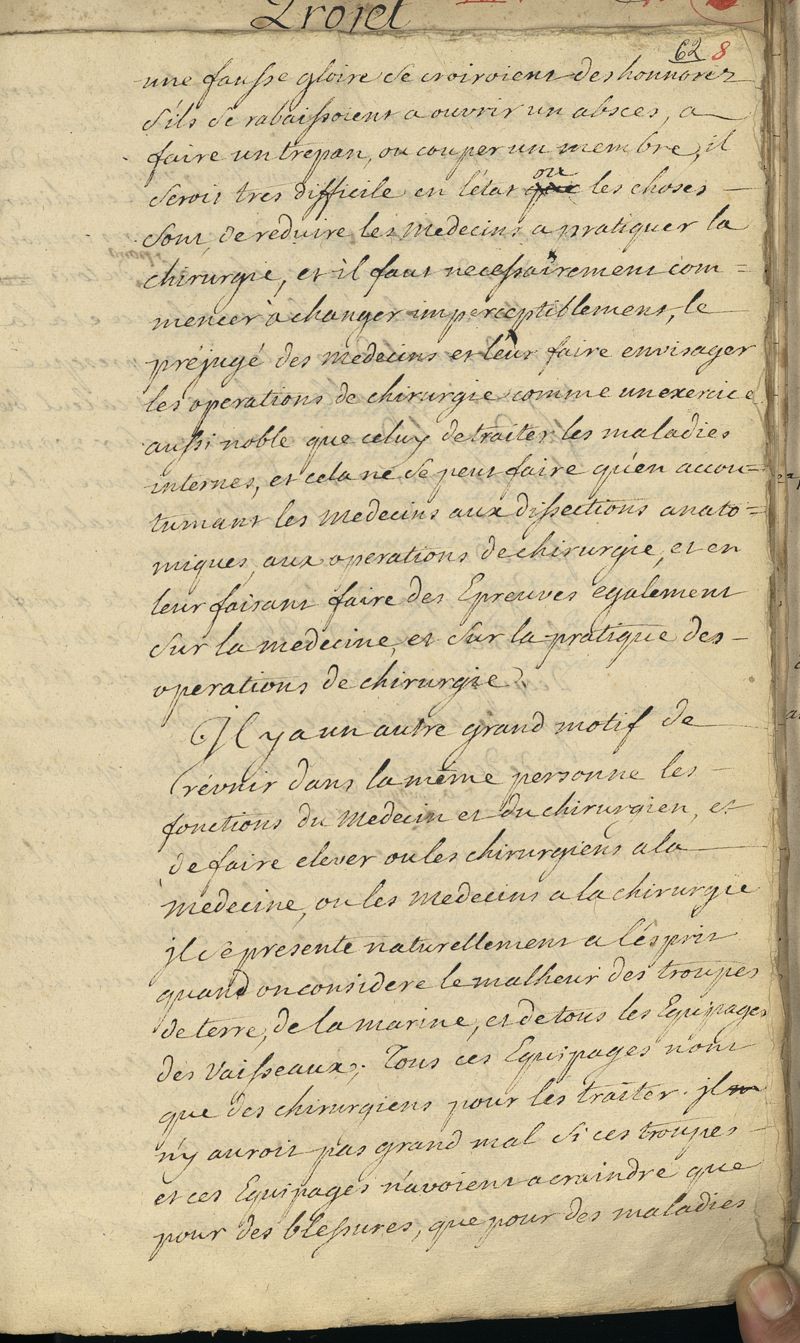 Projet
62 8
une fausse gloire se croiroient deshonnorez
s'ils se rabaissoient a ouvrir un absces, a
faire un trepan, ou couper un membre, il
seroit tres difficile en l'état que ou les choses
sont, de reduire les medecins a pratiquer la
chirurgie, et il faut necessairement com=
mencer à changer imperceptiblement, le
préjugé des medecins et leur faire envisager
les operations de chirurgie comme un exercice
aussi noble que celuy de traiter les maladies
internes, et cela ne se peut faire qu'en accou=
tumant les medecins aux dissections anato=
miques, aux operations de chirurgie, et en
leur faisant faire des Epreuves egalement
sur la medecine, et sur la pratique des
operations de chirurgie.
Il y a un autre grand motif de
réünir dans la même personne les
fonctions du medecin et du chirurgien, et
de faire elever ou les chirurgiens a la
medecine, ou les medecins a la chirurgie
jl se presente naturellement a l'ésprit
quand on considere le malheur des troupes
de terre, de la marine, et de tous les Equipages
des Vaisseaux. Tous ces Equipages n'ont
que des chirurgiens pour les traiter. jl
n'y auroit pas grand mal si ces troupes
et ces Equipages n'avoient a craindre que
pour des blessures, que pour des maladies